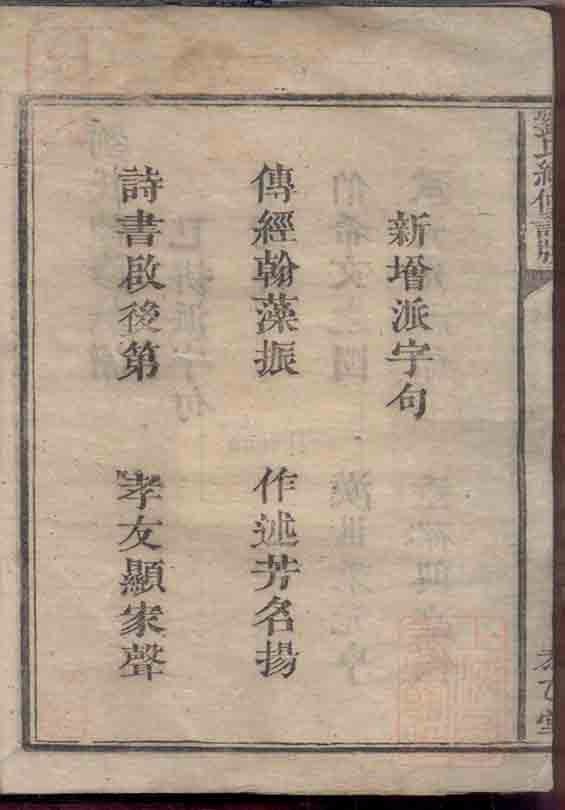 新增派字句
傳經翰藻振 作述芳名揚
詩書啟後第 孝友顯家聲